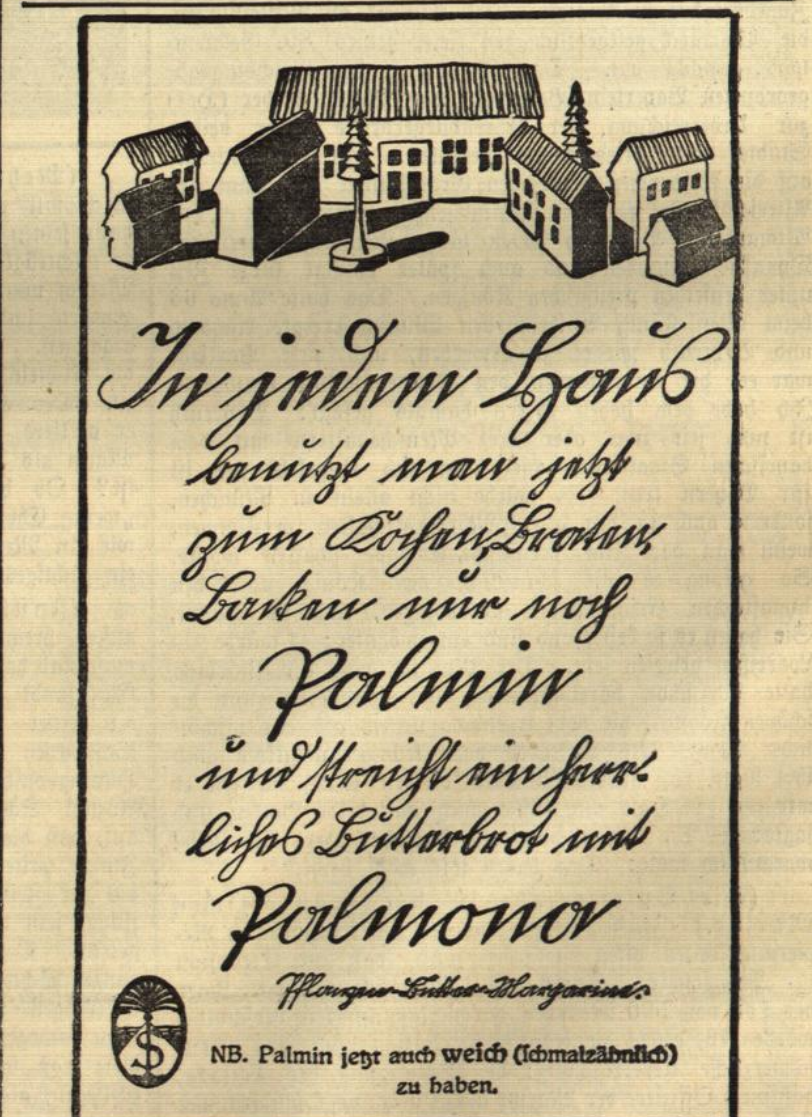 In jedem Haus
benutzt man jetzt
zum Kochen, Braten,
Backen nur noch
Palmin
und streicht ein herr-
liches Butterbrot mit
Palmona
Pflanzen-Butter-Margarine.
S
NB. Palmin jetzt auch weich (schmalzähnlich)
zu haben.